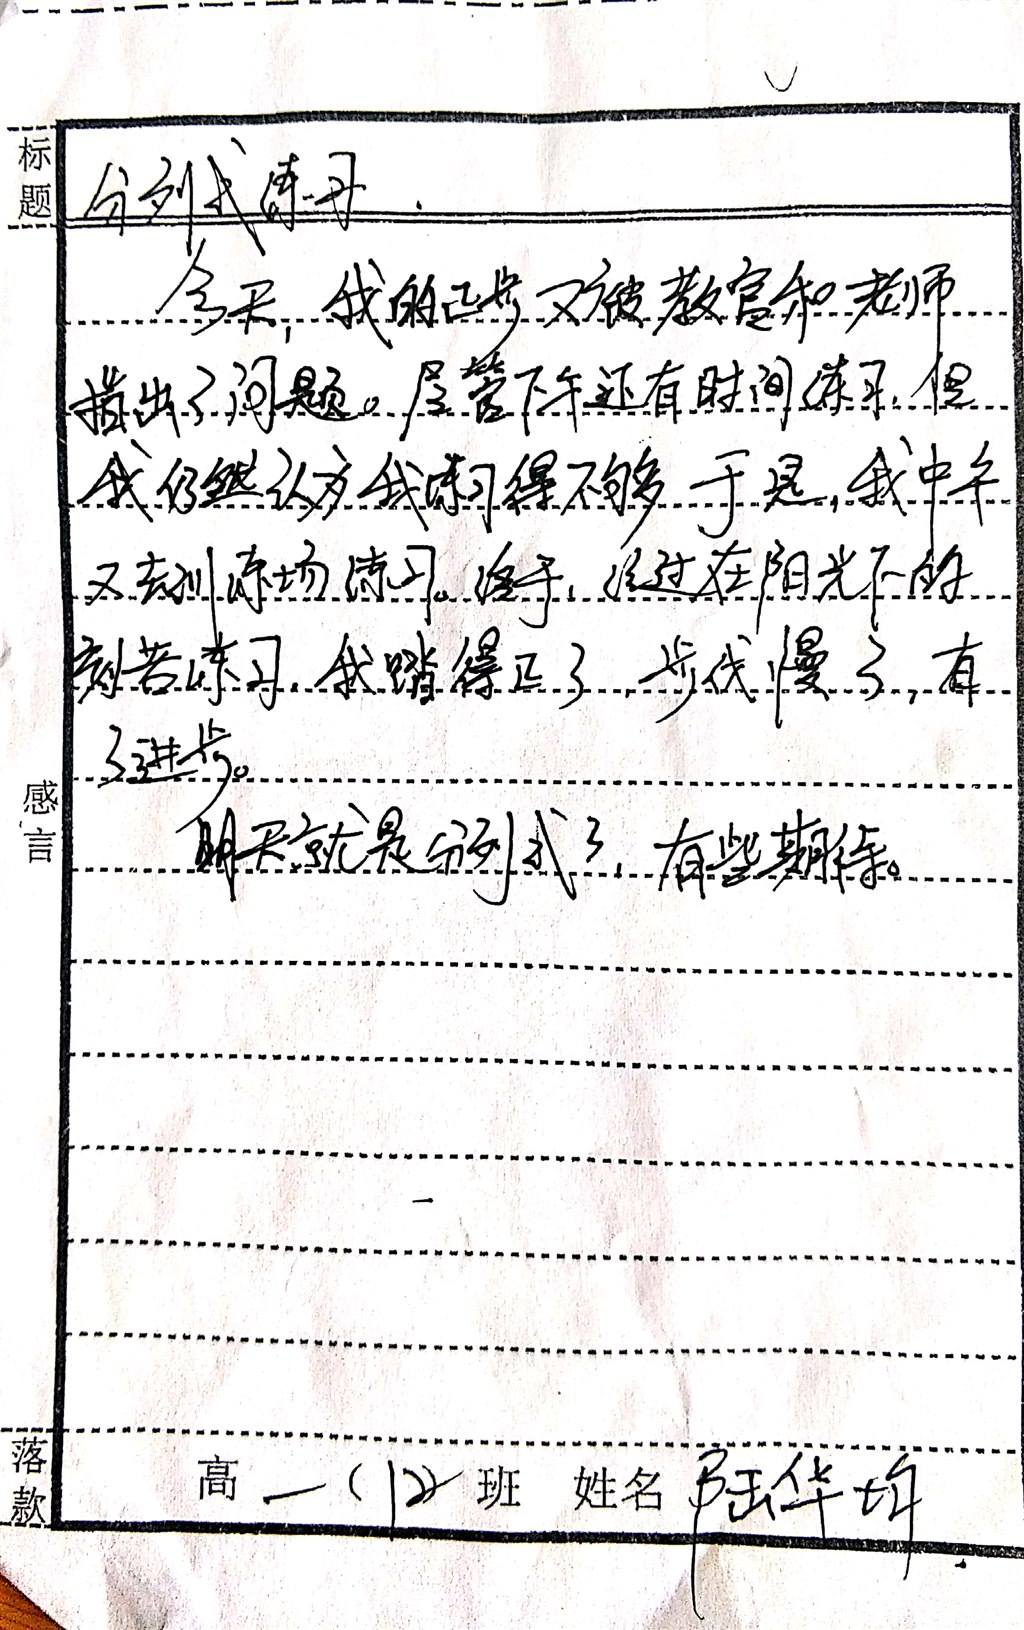 标题
分列式练习
今天,我的正步又被教官和老师
指出了问题。尽管下午还有时间练习,但
我仍然认为我练习得不够 于是,我中午
又去训练场练习。终于,经过在阳光下的
刻苦练习,我踏得正了,步伐慢了,有
了进步。
感言
明天就是分列式了,有些期待。
落款
高一(12)班 姓名 陆华均